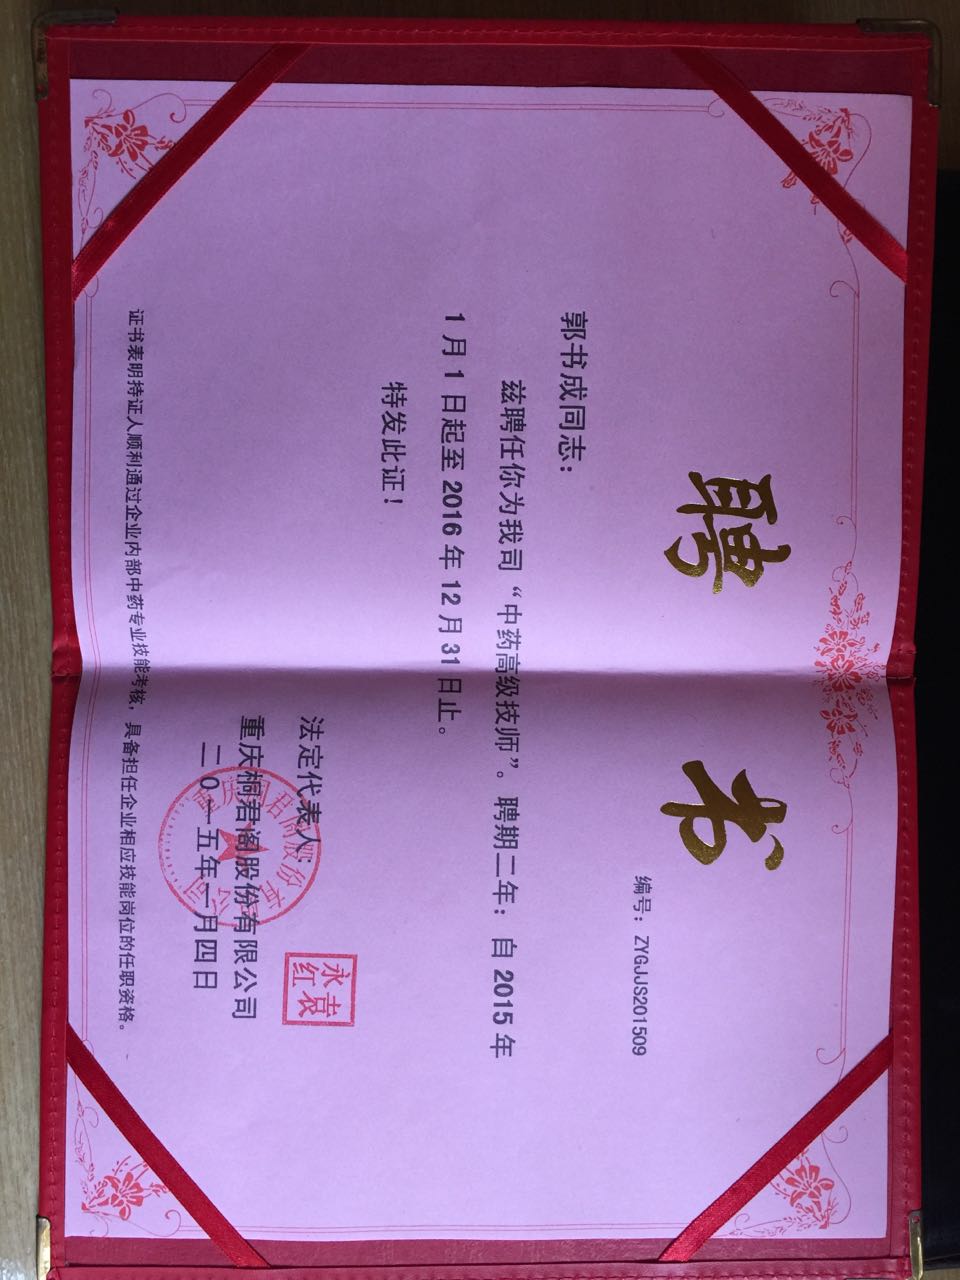 聘书
编号：ZYGJJS201509
郭书成同志：
兹聘任你为我司“中药高级技师”。聘期二年：自 2015 年
1 月 1 日起至 2016 年 12 月 31 日止。
特发此证！
法定代表人：
袁永红
重庆桐君阁股份有限公司
二〇一五年一月四日
重庆桐君阁股份有限公司
证书表明持证人顺利通过企业内部中药专业技能考核，具备担任企业相应技能岗位的任职资格。